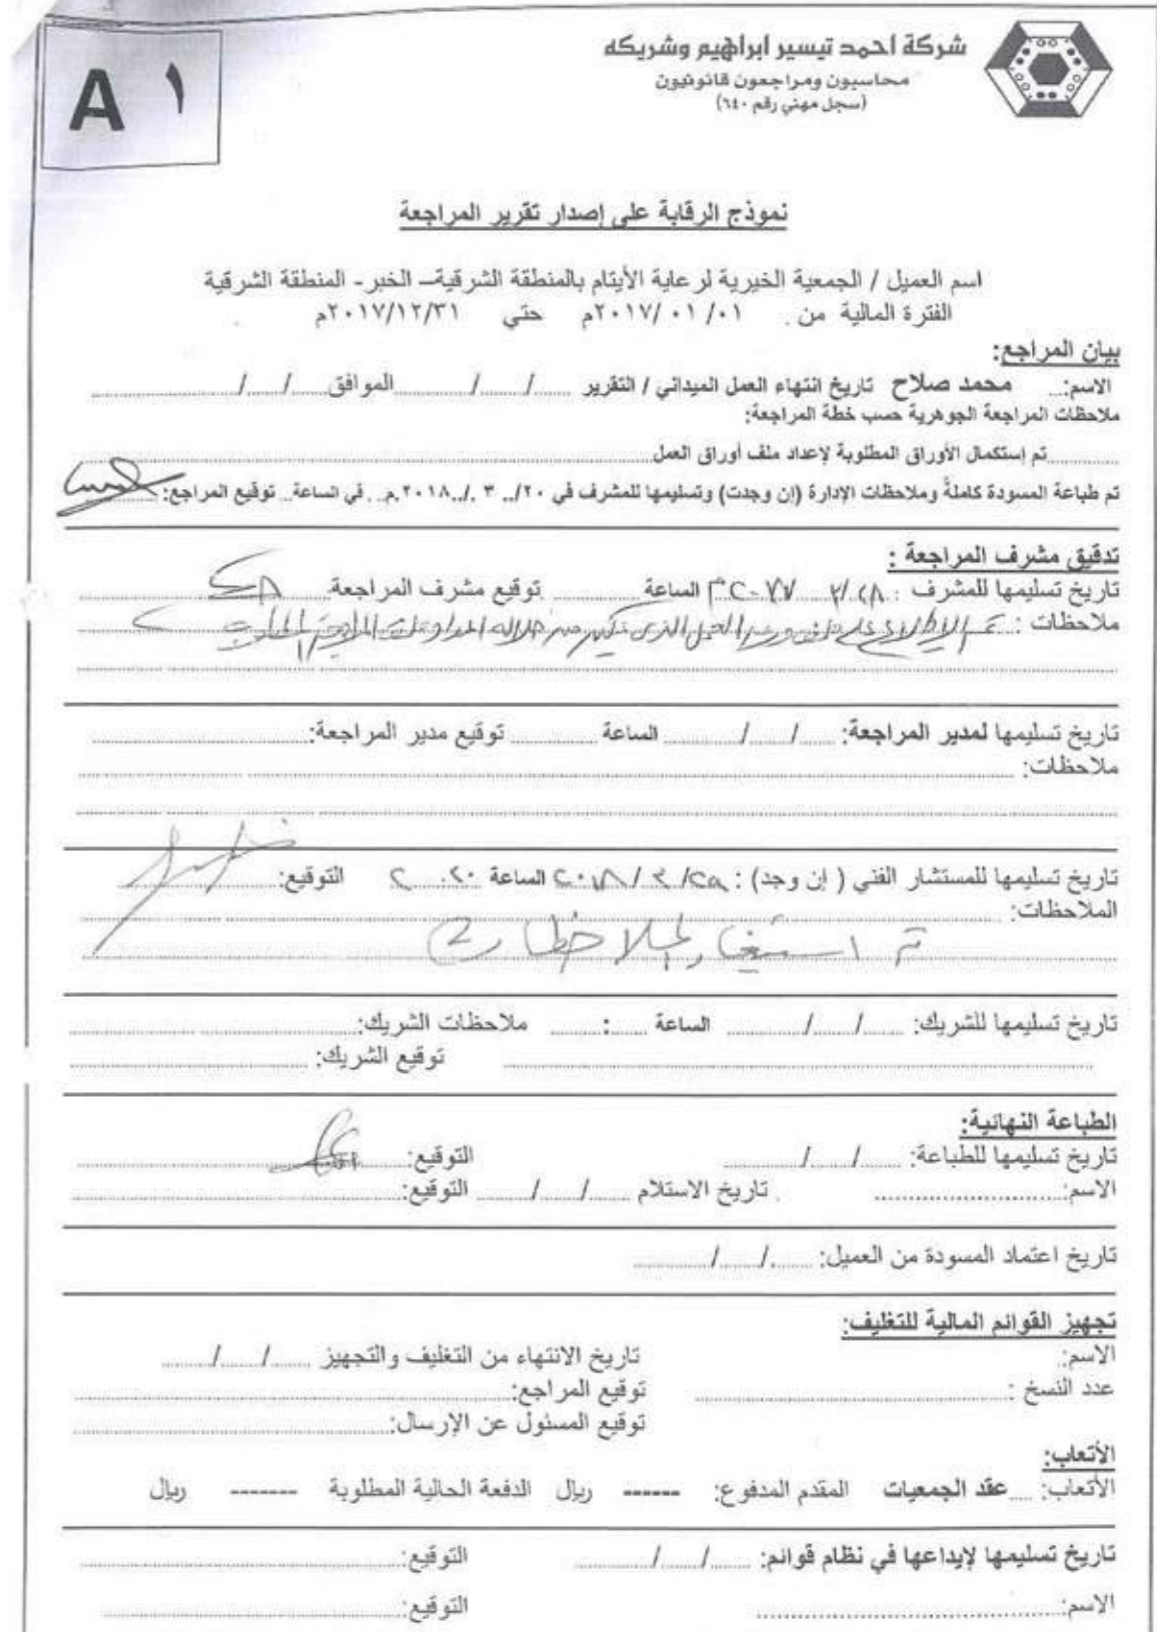 شركة احمد تيسير ابراهيم وشريكه
محاسبون ومراجعون قانونيون
(سجل مهني رقم ٦٤٠)
A ١
نموذج الرقابة على إصدار تقرير المراجعة
اسم العميل / الجمعية الخيرية لرعاية الأيتام بالمنطقة الشرقية– الخبر - المنطقة الشرقية
الفترة المالية من ٠١/ ٠١ /٢٠١٧م حتي ٢٠١٧/١٢/٣١م
بيان المراجع:
الاسم:... محمد صلاح تاريخ انتهاء العمل الميداني / التقرير ....../....../............الموافق....../....../............
ملاحظات المراجعة الجوهرية حسب خطة المراجعة:
............تم إستكمال الأوراق المطلوبة لإعداد ملف أوراق العمل............
تم طباعة المسودة كاملةً وملاحظات الإدارة (إن وجدت) وتسليمها للمشرف في ٢٠/.. ٣ ./..٢٠١٨.م.. في الساعة.. توقيع المراجع:
تدقيق مشرف المراجعة :
تاريخ تسليمها للمشرف : الساعة ............ توقيع مشرف المراجعة............
ملاحظات : تم الاطلاع على العمل الذي
تاريخ تسليمها لمدير المراجعة: ....../....../............ الساعة ............ توقيع مدير المراجعة:............
ملاحظات:............
تاريخ تسليمها للمستشار الفني ( إن وجد) : ٢٠١٨/٣/٢٩ الساعة التوقيع:............
الملاحظات:............
تم
تاريخ تسليمها للشريك: ....../....../............ الساعة ......:...... ملاحظات الشريك:............
............ توقيع الشريك: ............
الطباعة النهائية:
تاريخ تسليمها للطباعة: ....../....../............ التوقيع:............
الاسم:............ تاريخ الاستلام ....../....../............ التوقيع:............
تاريخ اعتماد المسودة من العميل: ....../....../............
تجهيز القوائم المالية للتغليف:
الاسم: تاريخ الانتهاء من التغليف والتجهيز ....../....../............
عدد النسخ :............ توقيع المراجع:............
توقيع المسئول عن الإرسال:............
الأتعاب:
الأتعاب: ....عقد الجمعيات المقدم المدفوع: ------ ريال الدفعة الحالية المطلوبة ------- ريال
تاريخ تسليمها لإيداعها في نظام قوائم: ....../....../............ التوقيع:............
الاسم:............ التوقيع:............